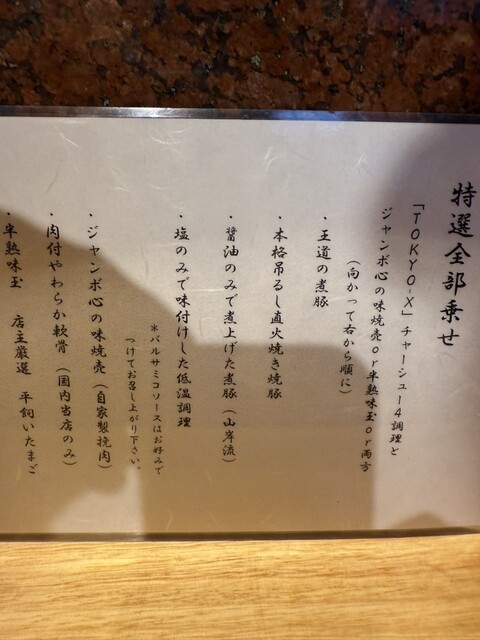 特選全部乗せ
「TOKYO-X」チャーシュー4調理と
ジャンボ心の味焼売or半熟味玉or両方
(向かって右から順に)
・王道の煮豚
・本格吊るし直火焼き焼豚
・醤油のみで煮上げた煮豚(山岸流)
・塩のみで味付けした低温調理
*バルサミコソースはお好みで
つけてお召し上がり下さい。
・ジャンボ心の味焼売(自家製挽肉)
・肉付やわらか軟骨(国内当店のみ)
・半熟味玉 店主厳選 平飼いたまご